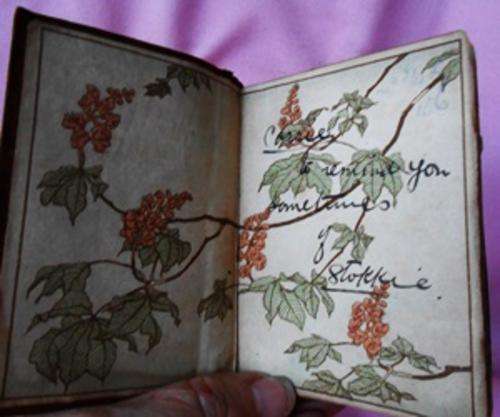 to remind you
sometimes
of
Stokkie.